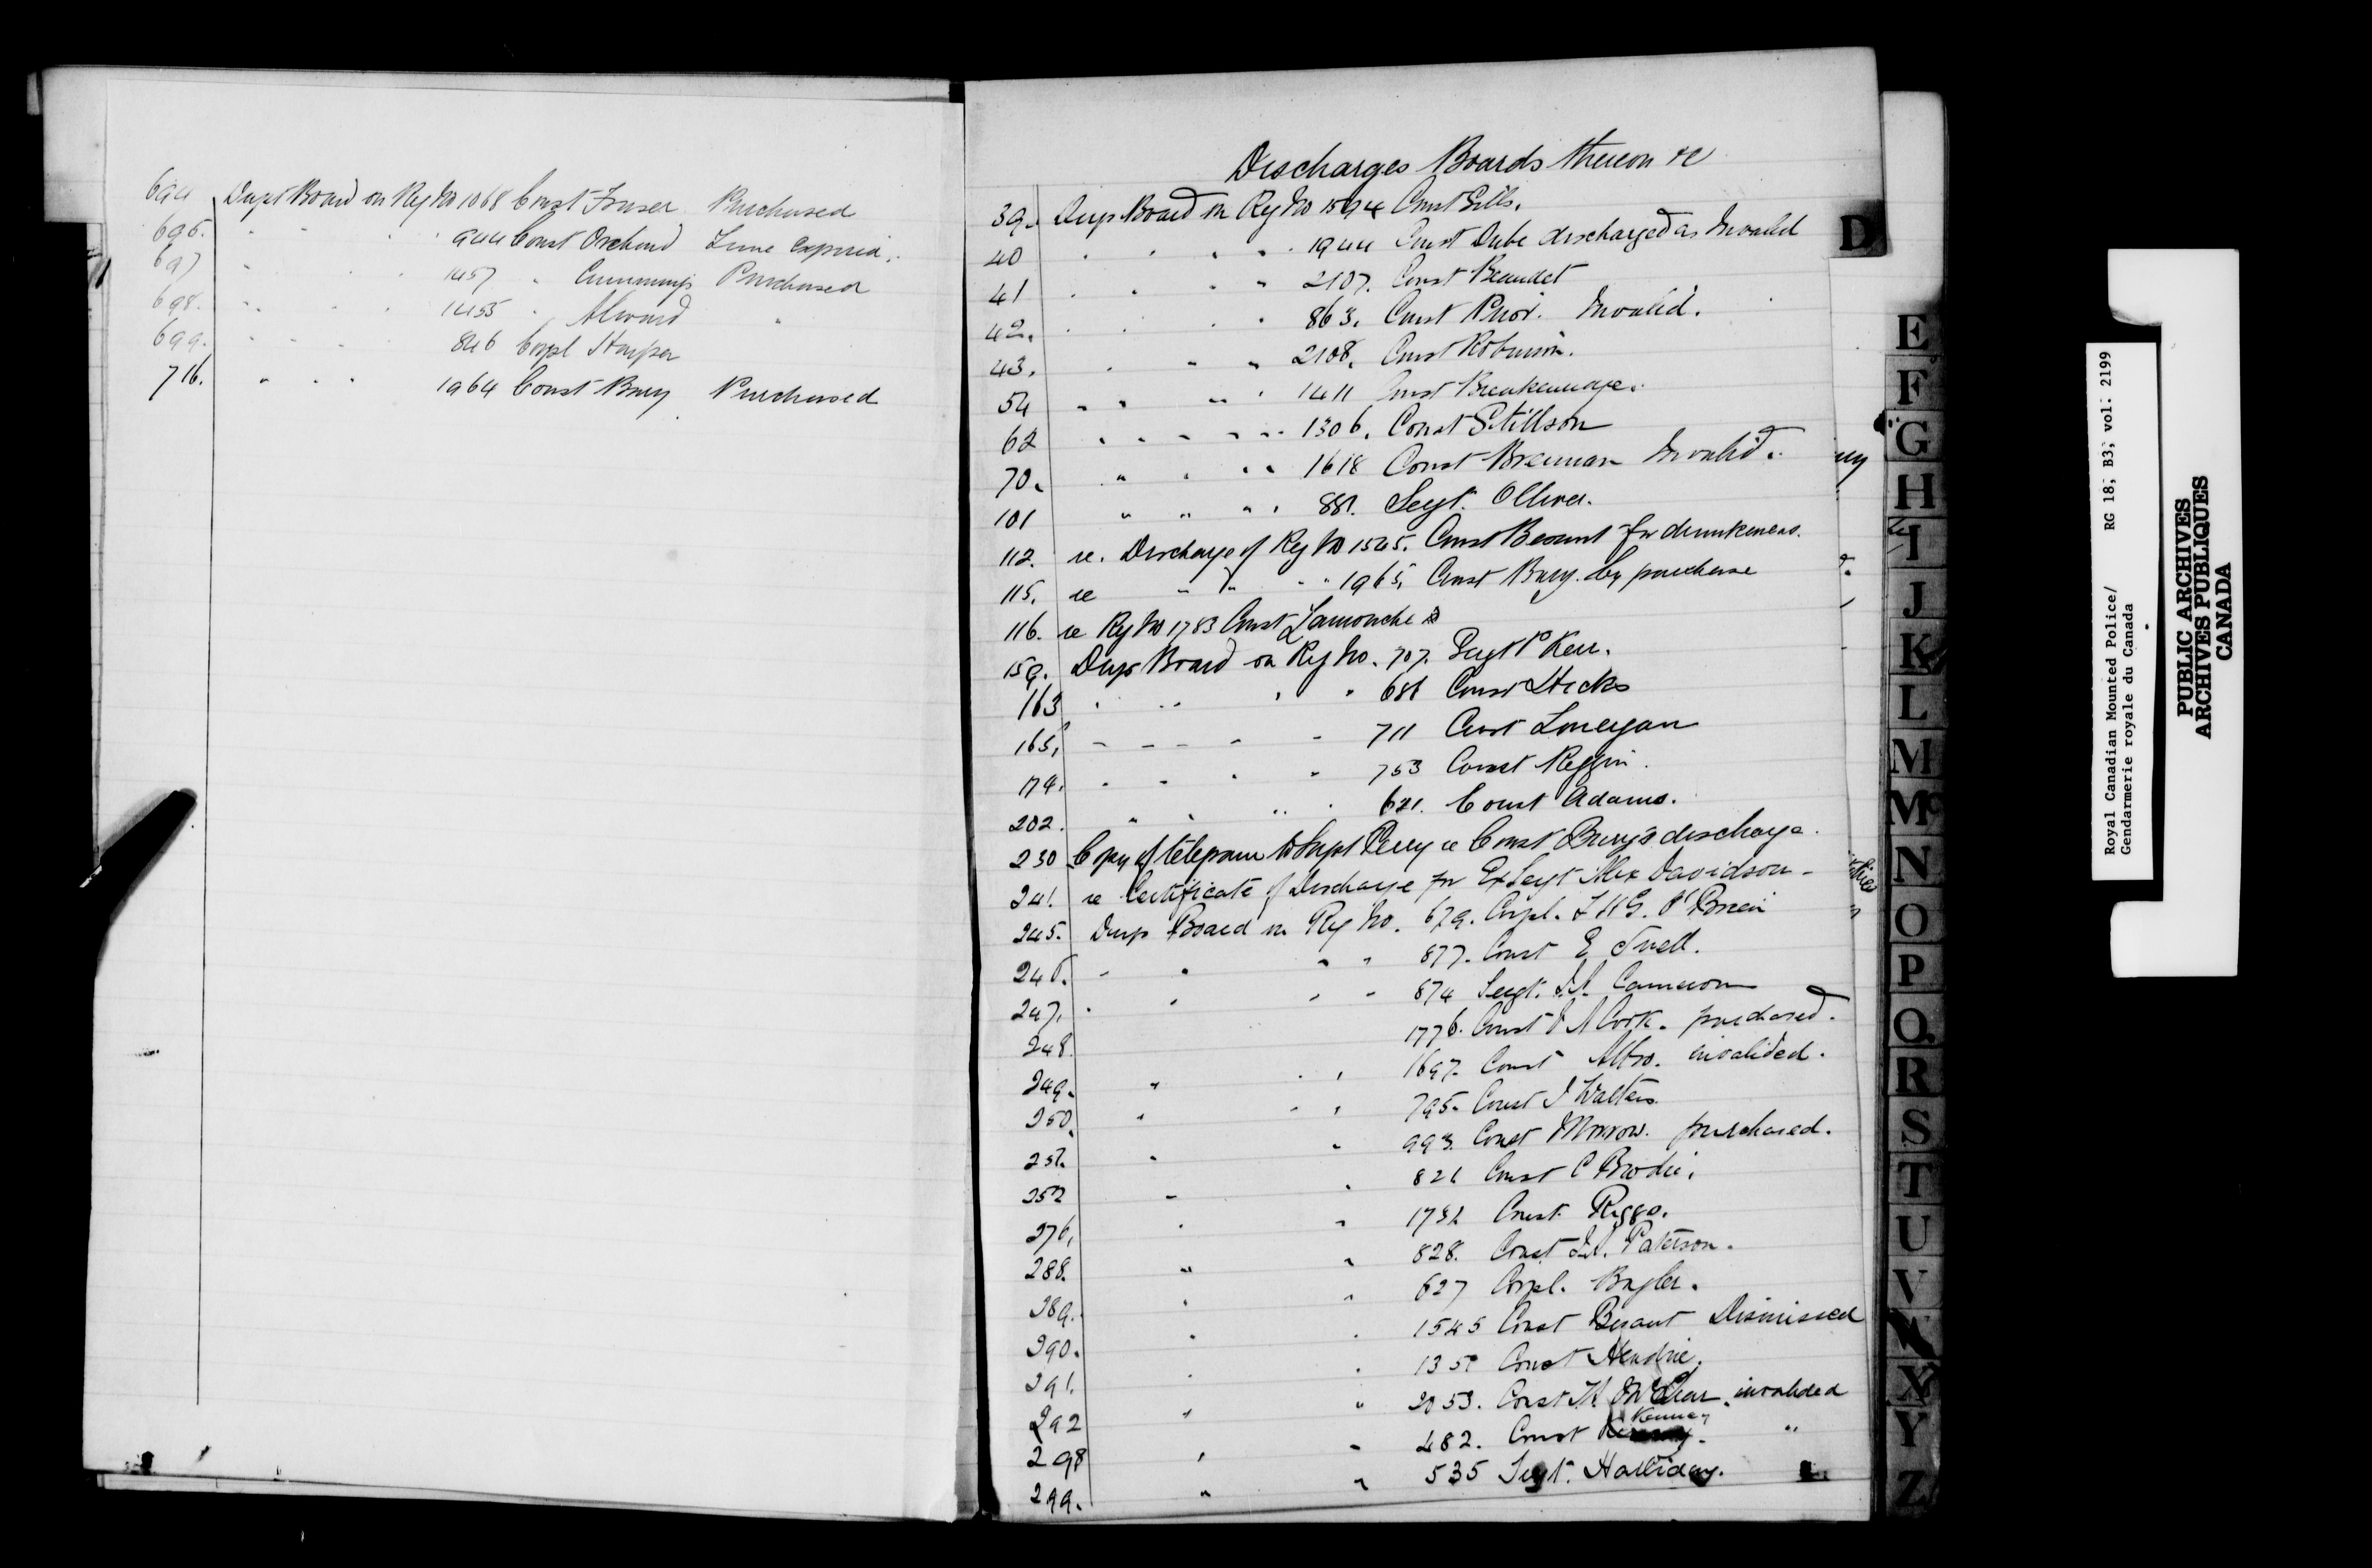 694 Dupt Board on Reg No 1068 Const Fraser Purchased
696. " " " 944 Const Orchard Time Expired.
697 " " 1457 " Cummings Purchased
698. " " 1455 " Alward "
699. " " " 846 Corpl Harper
716. " " " 1964 Const Bury Purchased
Discharges Boards thereon &c
39. Dup Board on Reg No 1594 Const Gills.
40 " " " " 1944 Const Dube discharged as Invalid
41 " " " " 2107. Const Beaudet
42. " " " " 863. Const Prior. Invalid.
43. " " " 2108. Const Robinson.
54 " " " " 1411 Const Breakenridge.
62 " " " " " 1306. Const Stillson
70. " " " " 1618 Const Brennan Invalid.
101 " " " " 881. Sergt. Olliver.
112. re. Discharge of Reg No 1545. Const Besant for drunkenness.
115. re " " " " 1965. Const Bury. by purchase
116. re Reg No 1783 Const Lamouche
159. Dup Board on Reg No. 707. Sergt P Kerr.
163 " " " " 681 Const Hicks
165. " " " " " 711 Const Lonergan
174. " " " " 753 Const Reggin.
202. " " " " 621. Const Adams.
230 Copy of telegram to Supt Perry re Const Bury's discharge.
241. re Certificate of Discharge for Ex Sergt Alex Davidson
245. Dup Board on Reg No. 679. Corpl. O'Brien
246. " " " " 877. Const E Snell.
247. " " " " 874 Sergt. Cameron
248. 1776. Const Cork. purchased.
249. " " " 1697. Const Albro. invalided.
250. " " " 795. Const J Walters.
251. " " 993. Const Morrow. purchased.
252 " " 821 Const C Brodie.
276. " " 1731 Const Riggs.
288. " " 828. Const Paterson.
289. " " 627 Corpl. Bagley.
290. " " 1545 Const Besant Dismissed
291. " " 1351 Const Hendrie.
292 " " 2053. Const H. McLean. invalided
298 " " 482. Const Kenney "
299. " " 535 Sergt. Halliday.
D
E
F
G
H
I
J
K
L
M
Mc
N
O
P
Q
R
S
T
U
V
W
X
Y
Z
Royal Canadian Mounted Police/ RG 18; B3; vol: 2199
Gendarmerie royale du Canada
PUBLIC ARCHIVES
ARCHIVES PUBLIQUES
CANADA